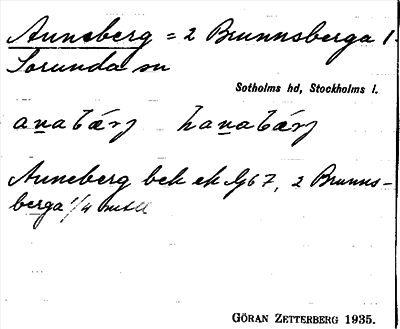 Anneberg = 2 Brunnsberga 1.
Sorunda sn
Sotholms hd, Stockholms l.
Anneberg bek ek 67, 2 Brunns-
berga 1/4 mtl
GÖRAN ZETTERBERG 1935.